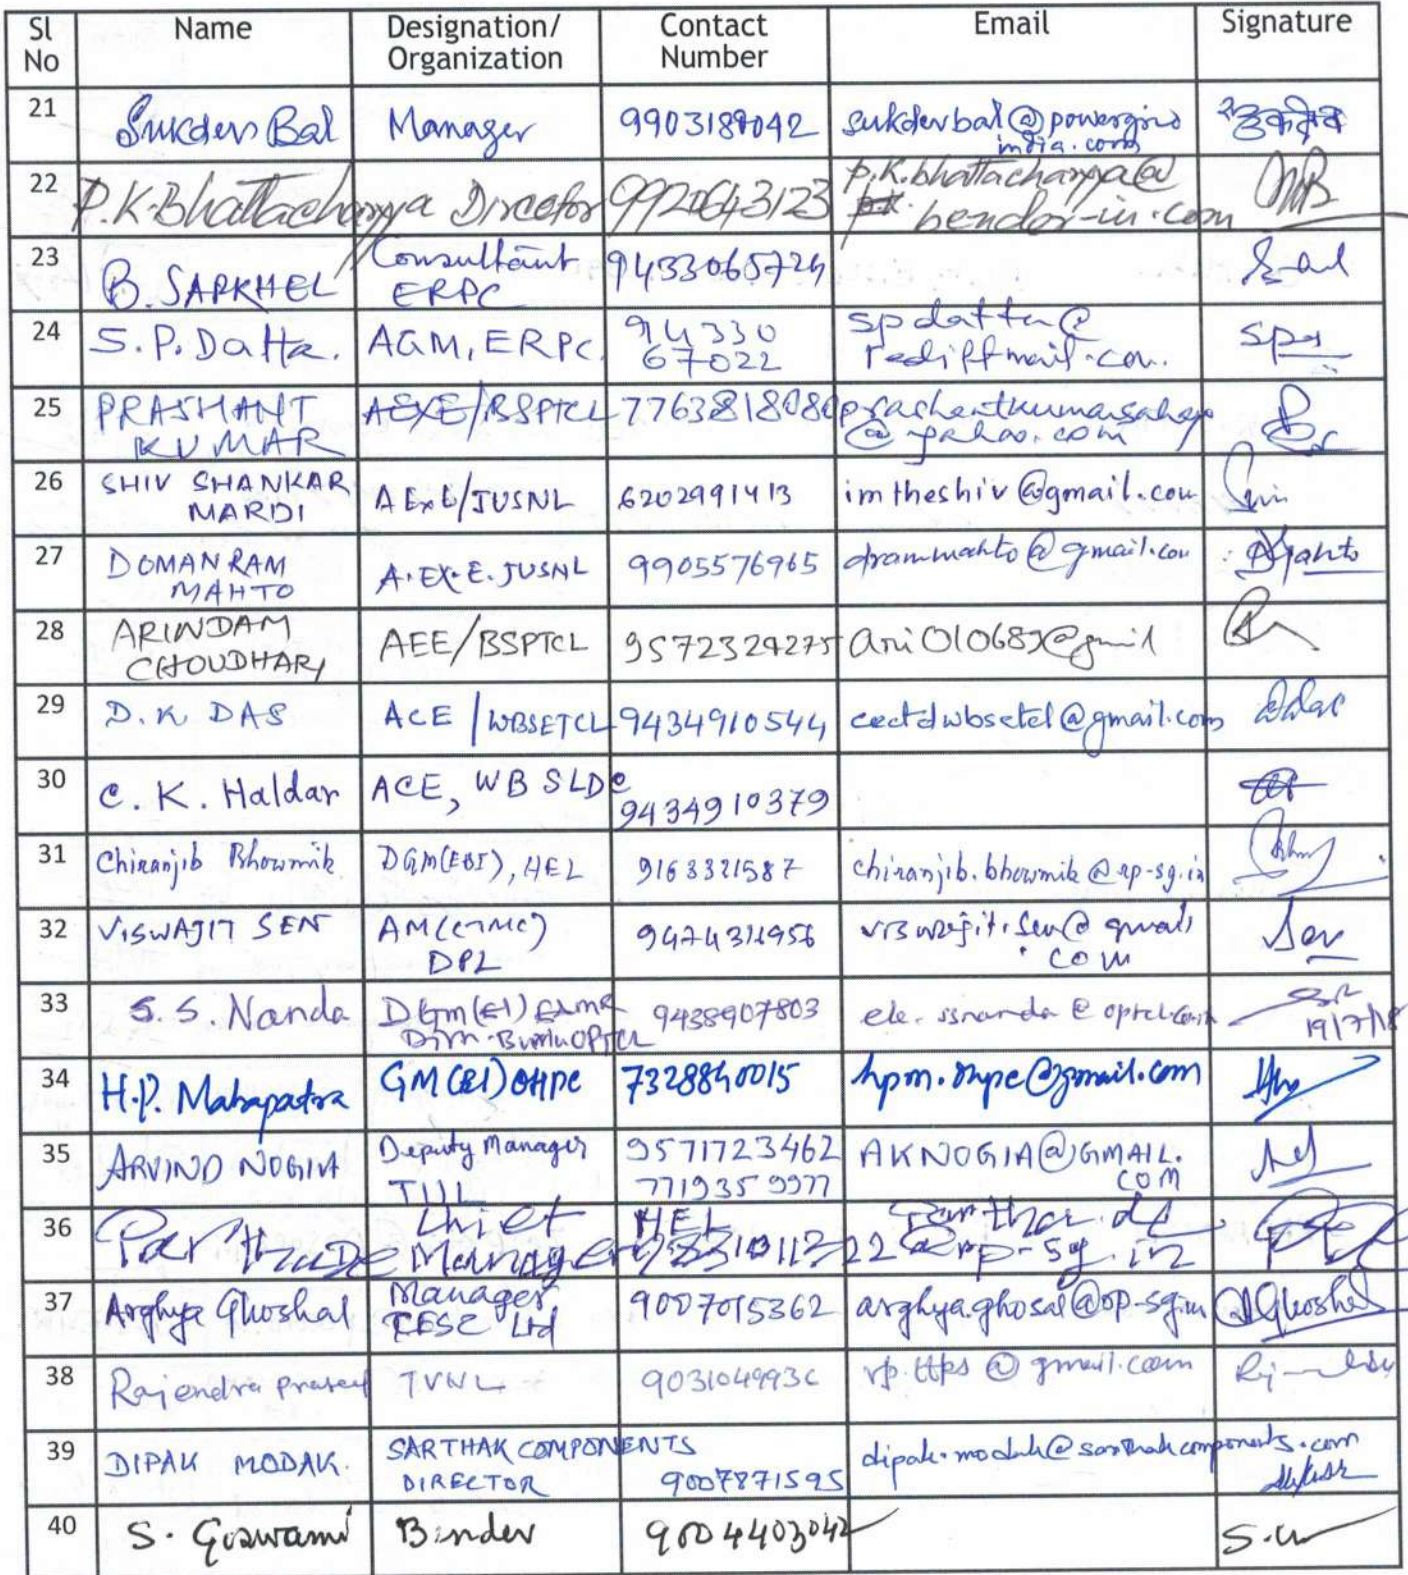 Sl No | Name | Designation/ Organization | Contact Number | Email | Signature
21 | Sukdev Bal | Manager | 9903189042 | sukdevbal@powergrid india.com | सुकदेव
22 | P.K.Bhattacharyya | Director | 9920643123 | p.k.bhattacharyya@ bender-in.com
23 | B. SARKHEL | Consultant ERPC | 9433065724
24 | S.P. Datta. | AGM, ERPC | 94330 67022 | spdatta@ rediffmail.com.
25 | PRASHANT KUMAR | AEXE/BSPTCL | 7763818080 | @yahoo.com
26 | SHIV SHANKAR MARDI | AExE/JUSNL | 6202991413 | imtheshiv@gmail.com
27 | DOMAN RAM MAHTO | A.EX.E. JUSNL | 9905576965 | drammahto@gmail.com
28 | ARINDAM CHOUDHARY | AEE/BSPTCL | 9572324275
29 | D.K DAS | ACE/WBSETCL | 9434910544 | cectdwbsetcl@gmail.com
30 | C. K. Haldar | ACE, WB SLDC | 9434910379
31 | Chiranjib Bhowmik | DGM(E&I), HEL | 9163321587 | chiranjib.bhowmik@rp-sg.in
32 | VISWAJIT SEN | DPL | Sen
33 | S. S. Nanda | 9438907803 | 19/7/18
34 | H.P. Mahapatra | GM(El) OHPC | 7328840015 | hpm.ohpc@gmail.com
35 | ARVIND NOGIA | Deputy Manager | 9571723462 7719359977 | AKNOGIA@GMAIL. COM
36 | Partha De | Chief Manager | HEL | partha.de @rp-sg.in
37 | Arghya Ghoshal | Manager CESC Ltd | 9007015362 | arghya.ghosal@rp-sg.in | AGhoshal
38 | Rajendra Prasad | TVNL | 9031049936 | rp.ttps@gmail.com
39 | DIPAK MODAK. | SARTHAK COMPONENTS DIRECTOR | 9007871595 | dipak.modak@sarthakcomponents.com
40 | S. Goswami | Bender | 9004403042